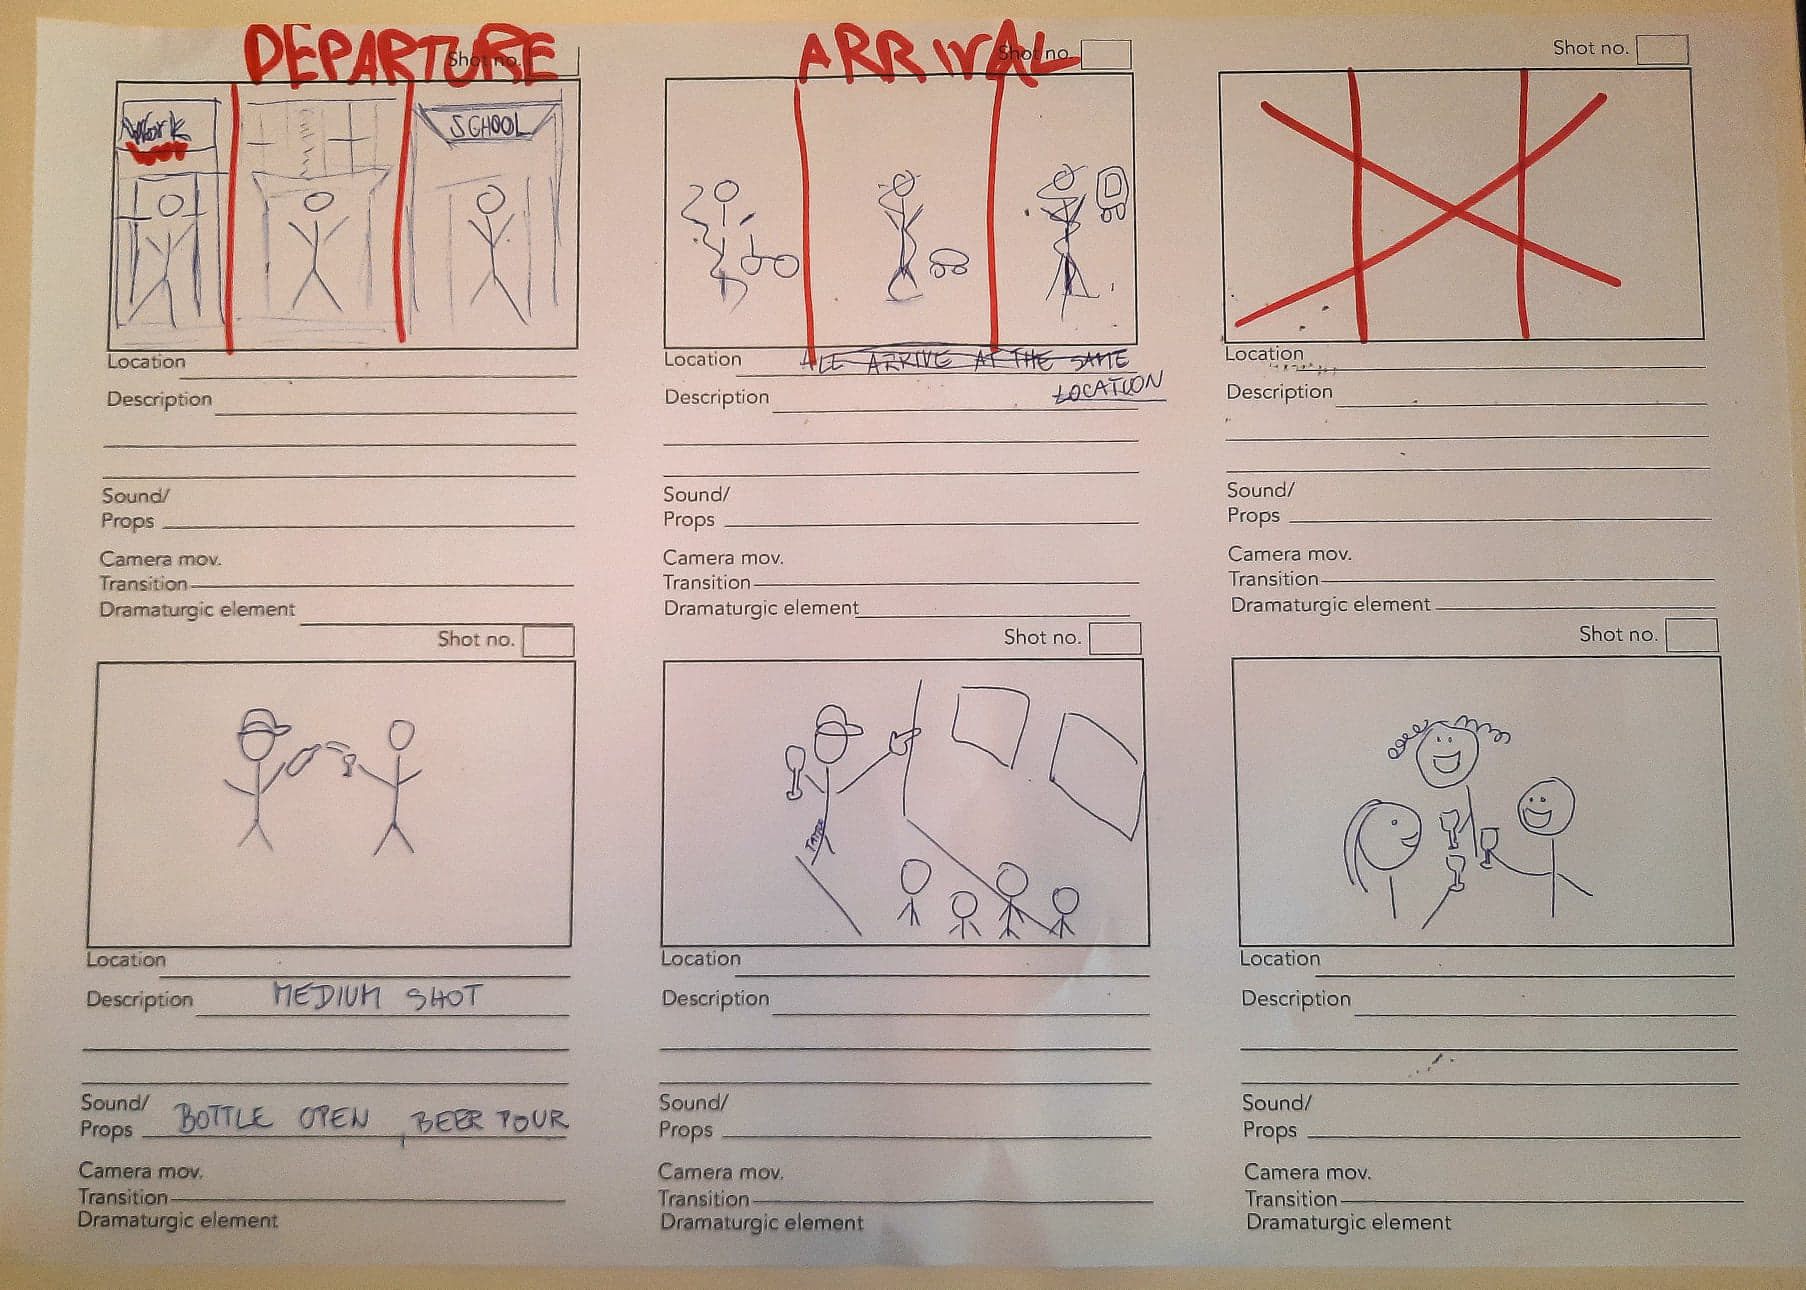 DEPARTURE
Shot no.
Work
SCHOOL
Location
Description
Sound/
Props
Camera mov.
Transition
Dramaturgic element
ARRIVAL
Shot no.
Location ALL ARRIVE AT THE SAME
LOCATION
Description
Sound/
Props
Camera mov.
Transition
Dramaturgic element
Shot no.
Location
Description
Sound/
Props
Camera mov.
Transition
Dramaturgic element
Shot no.
Location
Description MEDIUM SHOT
Sound/
Props BOTTLE OPEN, BEER POUR
Camera mov.
Transition
Dramaturgic element
Shot no.
Location
Description
Sound/
Props
Camera mov.
Transition
Dramaturgic element
Shot no.
Location
Description
Sound/
Props
Camera mov.
Transition
Dramaturgic element